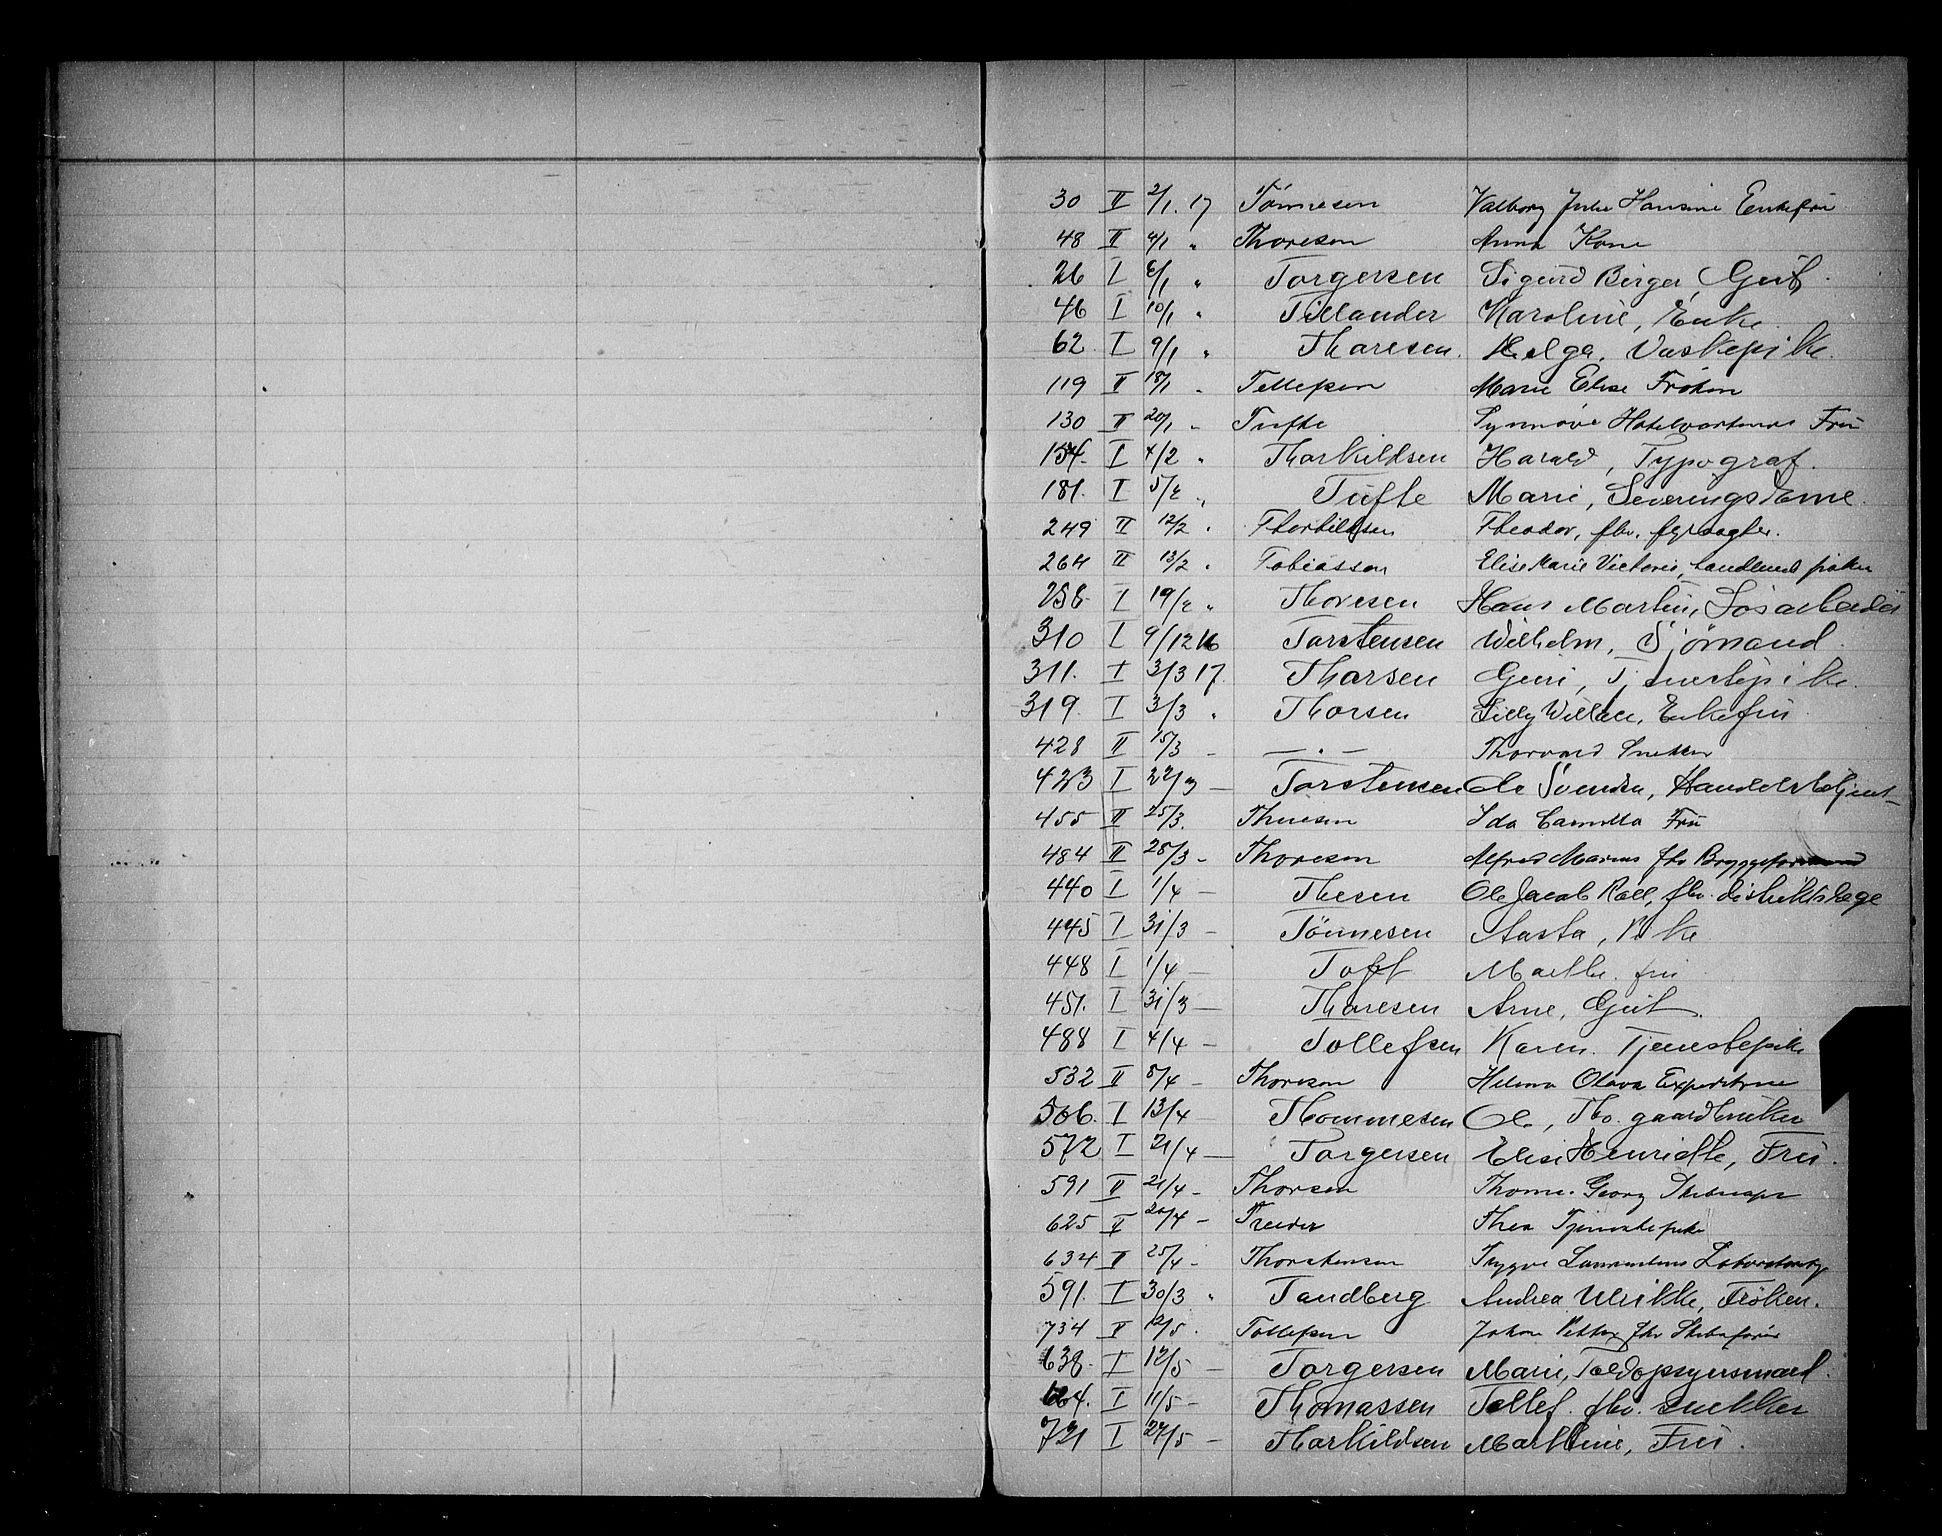 30 II 2/1. 17 Tønnesen Valborg Julie Hansine Enkefru
48 II 4/1 " Thoresen Anna Kone
26 I 6/1 " Torgersen Sigurd Birger, Gut
46 I 10/1 " Tillander Karoline, Enke.
62 I 9/1 " Thoresen. Helga, Vaskepike.
119 II 18/1 - Tellefsen Marie Elise Frøken
130 II 20/1 - Tufte Synnøve Fru
154. I 4/2 " Thorkildsen Harald, Typograf.
181. I 5/2 " Tufte Marie, Serveringsdame.
249 II 12/2 " Thorkildsen Theodor, fhv. fyrvogter.
264 II 13/2 " Tobiassen Elise Marie Victoria, pike
258 I 19/2 " Thoresen Hans Martin, Løsarbeider
310 I 9/12 16 Torstensen Wilhelm, Sjømand.
311. I 3/3 17. Thorsen Guri, Tjenestepike.
319 I 3/3 " Thorsen Enkefru
428 II 15/3 - — " — Thorvard Snekker
423 I 22/3 — Torstensen Ole Svendsen, Handelsbetjent
455 II 25/3. Thuesen Ida Camilla Fru
484 II 28/3 - Thoresen Alfred Marius fhv
440 I 1/4 — Thesen Ole Jacob Roll, fhv. distriktslæge
445 I 31/3 — Tønnesen Aasta, Pike
448 I 1/4 — Toft Marthe. fru
451. I 31/3 — Thoresen Arne, Gut.
488 I 4/4 — Tollefsen Karen. Tjenestepike
532 II 8/4 - Thoresen Helena Olava
506. I 13/4 — Thommesen Ole, fhv. gaardbruker
572 I 21/4 — Torgersen Elise Henriette, Fru.
591 II 21/4 - Thorsen Georg
625 II 20/4 - Treider Thea Tjenestepike
634 II 25/4 - Thorstensen Trygve
591. I 30/3 " Tandberg Andrea Ulrikke, Frøken.
734 II 12/5. Tollefsen Johan fhv Skibsfører
638. I 12/5 — Torgersen Marie, Toldopsynsmand.
624. I 11/5 - Thomassen Tellef. fhv. snekker
721 I 27/5 — Thorkildsen Marthine, Fru.